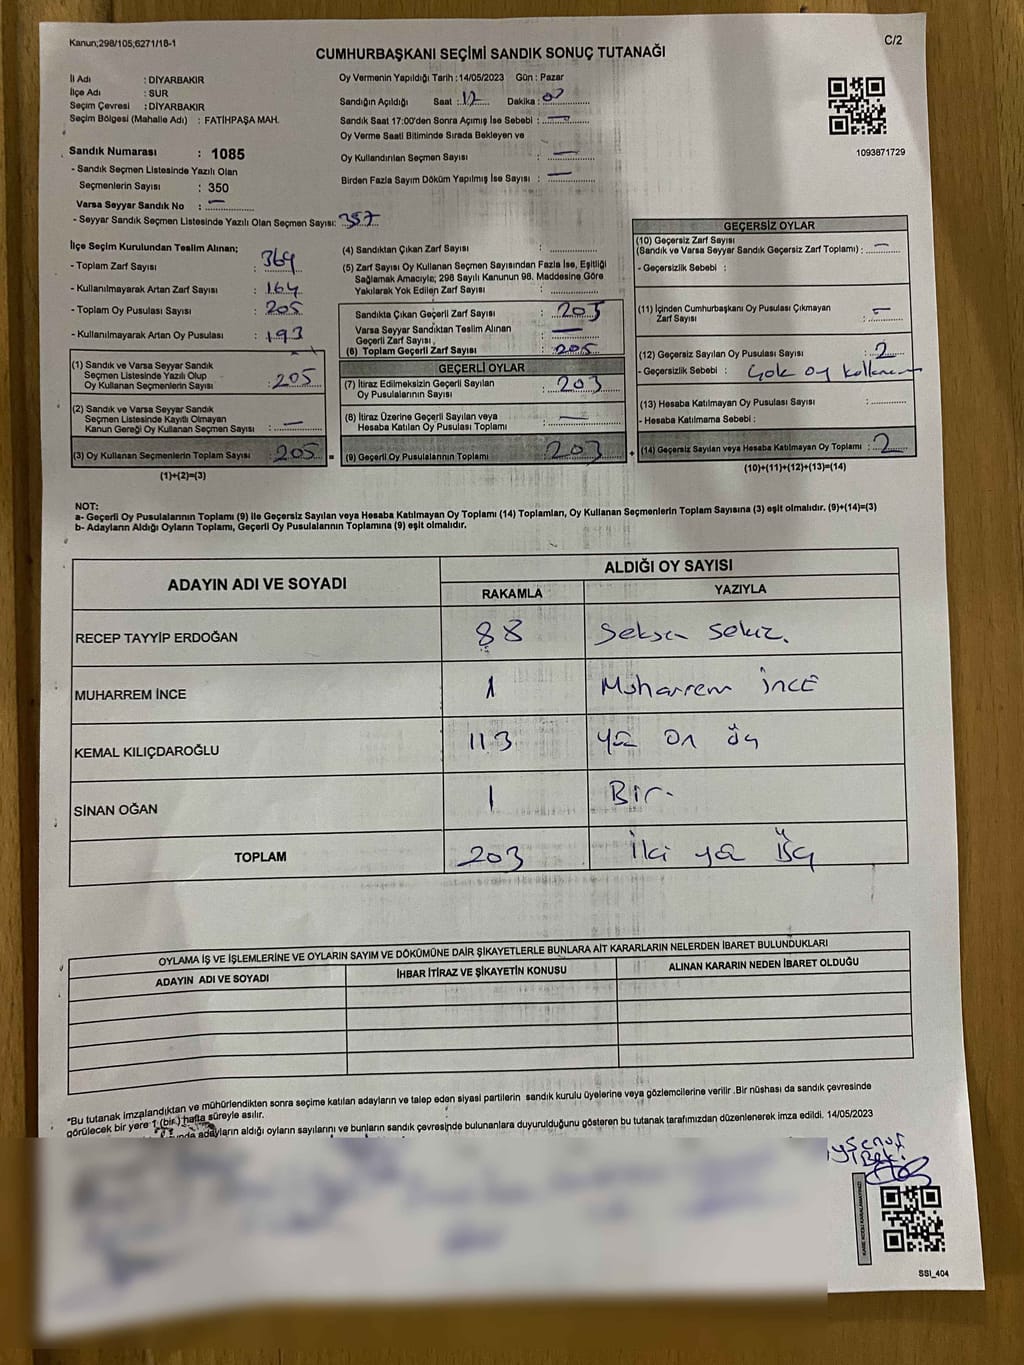 Kanun;298/105;6271/18-1
C/2
CUMHURBAŞKANI SEÇİMİ SANDIK SONUÇ TUTANAĞI
İl Adı : DİYARBAKIR
İlçe Adı : SUR
Seçim Çevresi : DİYARBAKIR
Seçim Bölgesi (Mahalle Adı) : FATİHPAŞA MAH.
Sandık Numarası : 1085
- Sandık Seçmen Listesinde Yazılı Olan
Seçmenlerin Sayısı : 350
Varsa Seyyar Sandık No : —
- Seyyar Sandık Seçmen Listesinde Yazılı Olan Seçmen Sayısı: 357
Oy Vermenin Yapıldığı Tarih : 14/05/2023 Gün : Pazar
Sandığın Açıldığı Saat : 17 Dakika : 00
Sandık Saat 17:00'den Sonra Açımış İse Sebebi : —
Oy Verme Saati Bitiminde Sırada Bekleyen ve
Oy Kullandırılan Seçmen Sayısı : —
Birden Fazla Sayım Döküm Yapılmış İse Sayısı : —
1093871729
İlçe Seçim Kurulundan Teslim Alınan;
- Toplam Zarf Sayısı : 369
- Kullanılmayarak Artan Zarf Sayısı : 164
- Toplam Oy Pusulası Sayısı : 205
- Kullanılmayarak Artan Oy Pusulası : 193
(1) Sandık ve Varsa Seyyar Sandık
Seçmen Listesinde Yazılı Olup
Oy Kullanan Seçmenlerin Sayısı : 205
(2) Sandık ve Varsa Seyyar Sandık
Seçmen Listesinde Kayıtlı Olmayan
Kanun Gereği Oy Kullanan Seçmen Sayısı : —
(3) Oy Kullanan Seçmenlerin Toplam Sayısı : 205 =
(1)+(2)=(3)
(4) Sandıktan Çıkan Zarf Sayısı :
(5) Zarf Sayısı Oy Kullanan Seçmen Sayısından Fazla İse, Eşitliği
Sağlamak Amacıyla; 298 Sayılı Kanunun 98. Maddesine Göre
Yakılarak Yok Edilen Zarf Sayısı :
Sandıkta Çıkan Geçerli Zarf Sayısı : 205
Varsa Seyyar Sandıktan Teslim Alınan
Geçerli Zarf Sayısı : —
(6) Toplam Geçerli Zarf Sayısı : 205
GEÇERLİ OYLAR
(7) İtiraz Edilmeksizin Geçerli Sayılan
Oy Pusulasının Sayısı : 203
(8) İtiraz Üzerine Geçerli Sayılan veya
Hesaba Katılan Oy Pusulası Toplamı : —
(9) Geçerli Oy Pusulalarının Toplamı : 203 +
GEÇERSİZ OYLAR
(10) Geçersiz Zarf Sayısı
(Sandık ve Varsa Seyyar Sandık Geçersiz Zarf Toplamı) : —
- Geçersizlik Sebebi :
(11) İçinden Cumhurbaşkanı Oy Pusulası Çıkmayan
Zarf Sayısı : —
(12) Geçersiz Sayılan Oy Pusulası Sayısı : 2
- Geçersizlik Sebebi : Çok oy kullanım
(13) Hesaba Katılmayan Oy Pusulası Sayısı :
- Hesaba Katılmama Sebebi :
(14) Geçersiz Sayılan veya Hesaba Katılmayan Oy Toplamı : 2
(10)+(11)+(12)+(13)=(14)
NOT:
a- Geçerli Oy Pusulalarının Toplamı (9) ile Geçersiz Sayılan veya Hesaba Katılmayan Oy Toplamı (14) Toplamları, Oy Kullanan Seçmenlerin Toplam Sayısına (3) eşit olmalıdır. (9)+(14)=(3)
b- Adayların Aldığı Oyların Toplamı, Geçerli Oy Pusulalarının Toplamına (9) eşit olmalıdır.
ADAYIN ADI VE SOYADI ALDIĞI OY SAYISI
RAKAMLA YAZIYLA
RECEP TAYYİP ERDOĞAN 88 Seksen Sekiz.
MUHARREM İNCE 1 Muharrem İNCE
KEMAL KILIÇDAROĞLU 113 Yüz On üç
SİNAN OĞAN 1 Bir.
TOPLAM 203 İki yüz Üç
OYLAMA İŞ VE İŞLEMLERİNE VE OYLARIN SAYIM VE DÖKÜMÜNE DAİR ŞİKAYETLERLE BUNLARA AİT KARARLARIN NELERDEN İBARET BULUNDUKLARI
ADAYIN ADI VE SOYADI İHBAR İTİRAZ VE ŞİKAYETİN KONUSU ALINAN KARARIN NEDEN İBARET OLDUĞU
*Bu tutanak imzalandıktan ve mühürlendikten sonra seçime katılan adayların ve talep eden siyasi partilerin sandık kurulu üyelerine veya gözlemcilerine verilir .Bir nüshası da sandık çevresinde
görülecek bir yere 1 (bir ) hafta süreyle asılır.
adayların aldığı oyların sayılarını ve bunların sandık çevresinde bulunanlara duyurulduğunu gösteren bu tutanak tarafımızdan düzenlenerek imza edildi. 14/05/2023
KARE KODU KARALAMAYINIZ!
SSİ_404